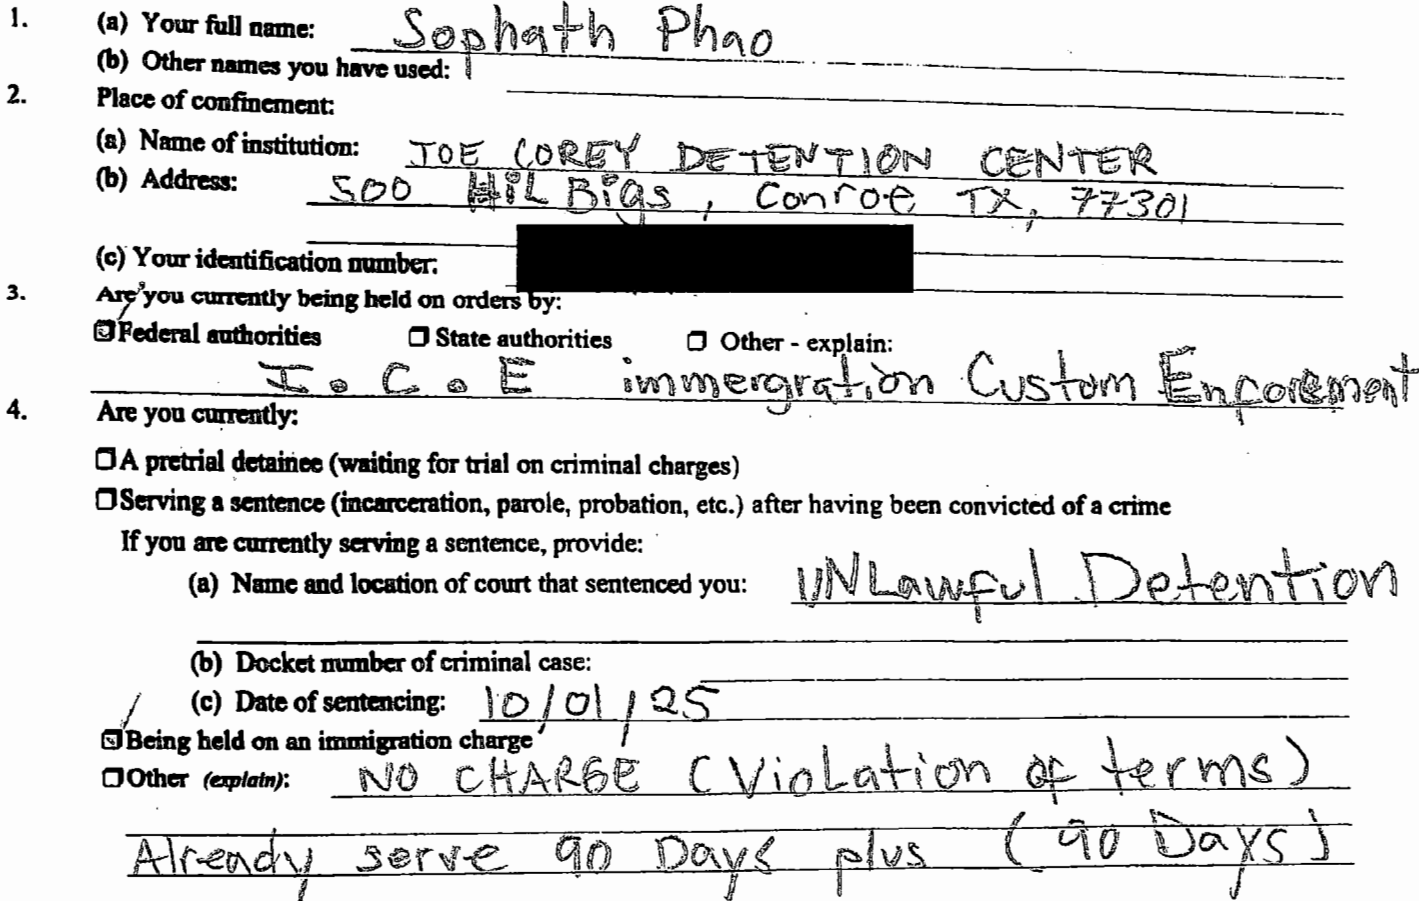 1. (a) Your full name: Sophath Phao
(b) Other names you have used:
2. Place of confinement:
(a) Name of institution: JOE COREY DETENTION CENTER
(b) Address: 500 HiL Bigs, Conroe TX, 77301
(c) Your identification number:
3. Are you currently being held on orders by:
☑Federal authorities ☐ State authorities ☐ Other - explain:
I.C.E immergration Custom Enforement
4. Are you currently:
☐A pretrial detainee (waiting for trial on criminal charges)
☐Serving a sentence (incarceration, parole, probation, etc.) after having been convicted of a crime
If you are currently serving a sentence, provide:
(a) Name and location of court that sentenced you: UNLawful Detention
(b) Docket number of criminal case:
(c) Date of sentencing: 10/01/25
☑Being held on an immigration charge
☐Other (explain): NO CHARGE (VioLation of terms)
Already serve 90 Days plus (90 Days)